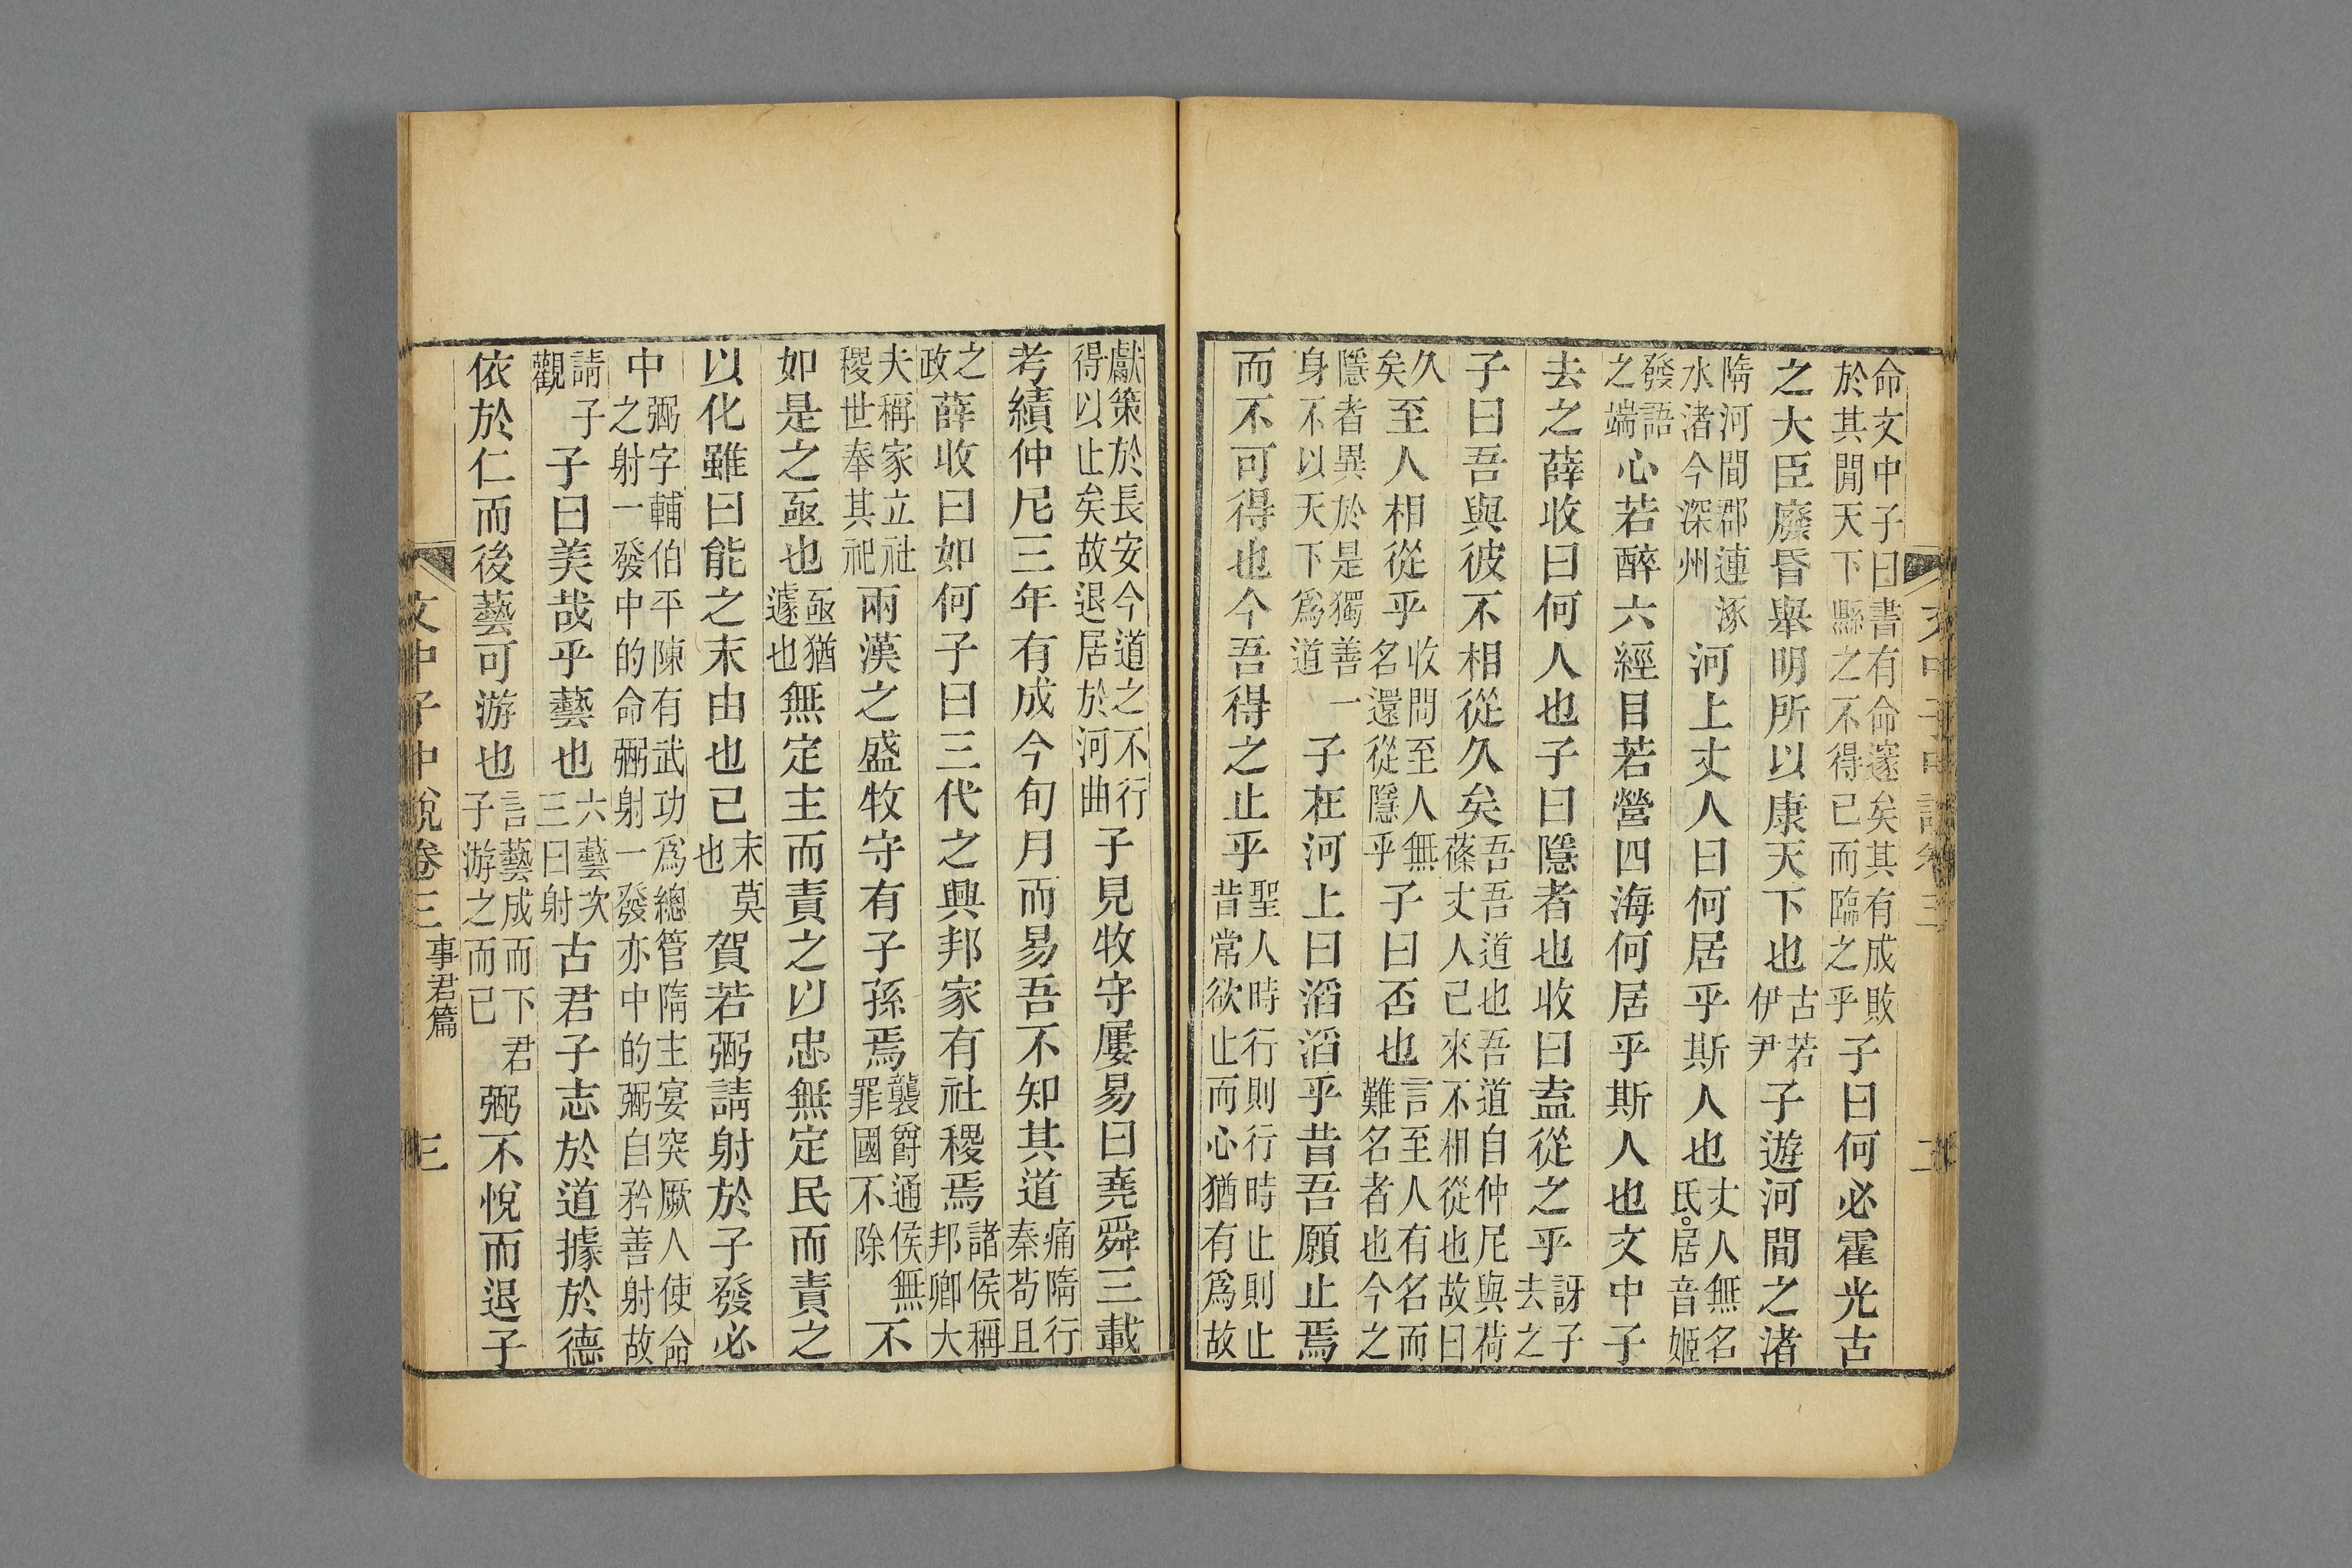 命文中子曰書有命邃矣其有成敗於其閒天下縣之不得已而臨之乎子曰何必霍光古
之大臣廢昏舉明所以康天下也古若伊尹子遊河間之渚
隋河間郡連涿水渚今深州河上丈人曰何居乎斯人也丈人無名氏。居音姬
發語之端心若醉六經目若營四海何居乎斯人也文中子
去之薛收曰何人也子曰隱者也收曰盍從之乎訝子去之
子曰吾與彼不相從久矣吾吾道也吾道自仲尼與荷蓧丈人已來不相從也故曰
久矣至人相從乎收問至人無名還從隱乎子曰否也言至人有名而難名者也今之
隱者異於是獨善一身不以天下爲道子在河上曰滔滔乎昔吾願止焉
而不可得也今吾得之止乎聖人時行則行時止則止昔常欲止而心猶有爲故
獻策於長安今道之不行得以止矣故退居於河曲子見牧守屢易曰堯舜三載
考績仲尼三年有成今旬月而易吾不知其道痛隋行秦苟且
之政薛收曰如何子曰三代之興邦家有社稷焉諸侯稱邦卿大
夫稱家立社稷世奉其祀兩漢之盛牧守有子孫焉襲爵通侯無罪國不除不
如是之亟也亟猶遽也無定主而責之以忠無定民而責之
以化雖曰能之末由也已末莫也賀若弼請射於子發必
中弼字輔伯平陳有武功爲總管隋主宴突厥人使命之射一發中的命弼射一發亦中的弼自矜善射故
請子觀子曰美哉乎藝也六藝次三曰射古君子志於道據於德
依於仁而後藝可游也言藝成而下君子游之而已弼不悅而退子
文中子中說卷三 事君篇 三